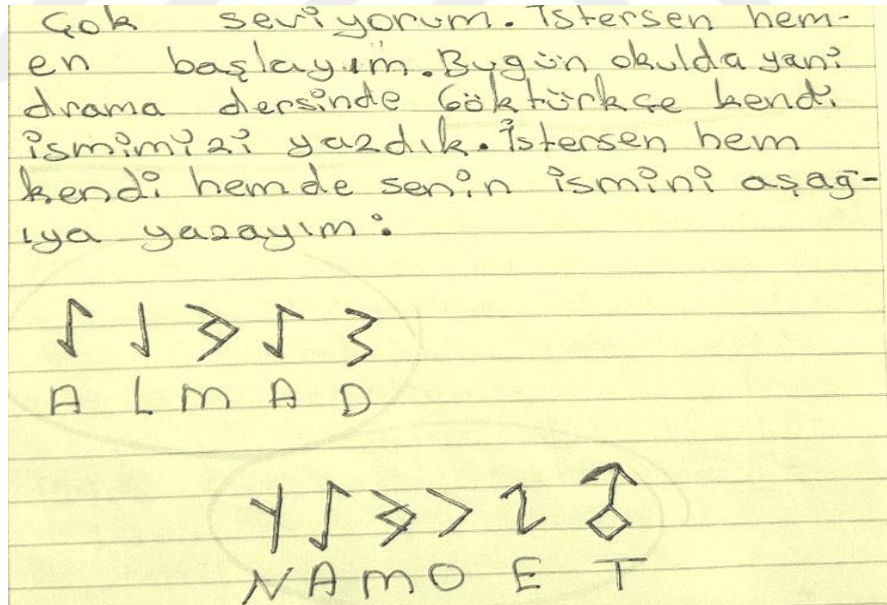 Çok seviyorum. İstersen hem-
en başlayım. Bugün okulda yani
drama dersinde Göktürkçe kendi
ismimizi yazdık. İstersen hem
kendi hemde senin ismini aşağ-
ıya yazayım:
A L M A D
N A M O E T